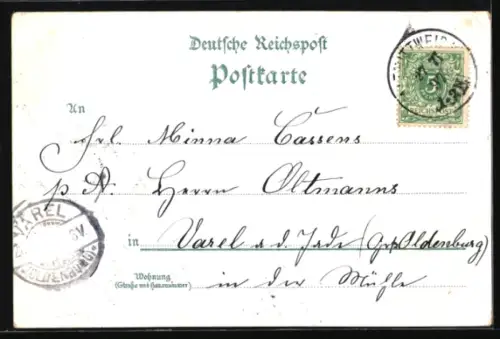 Deutsche Reichspost
Postkarte
An
Frl. Minna Cassens
p. A. Herrn Oltmanns
in Varel a. d. Jade (Grß. Oldenburg)
Wohnung
(Straße und Hausnummer)
in der Mühle
MITTWEIDA
5
VAREL
(OLDENBURG)